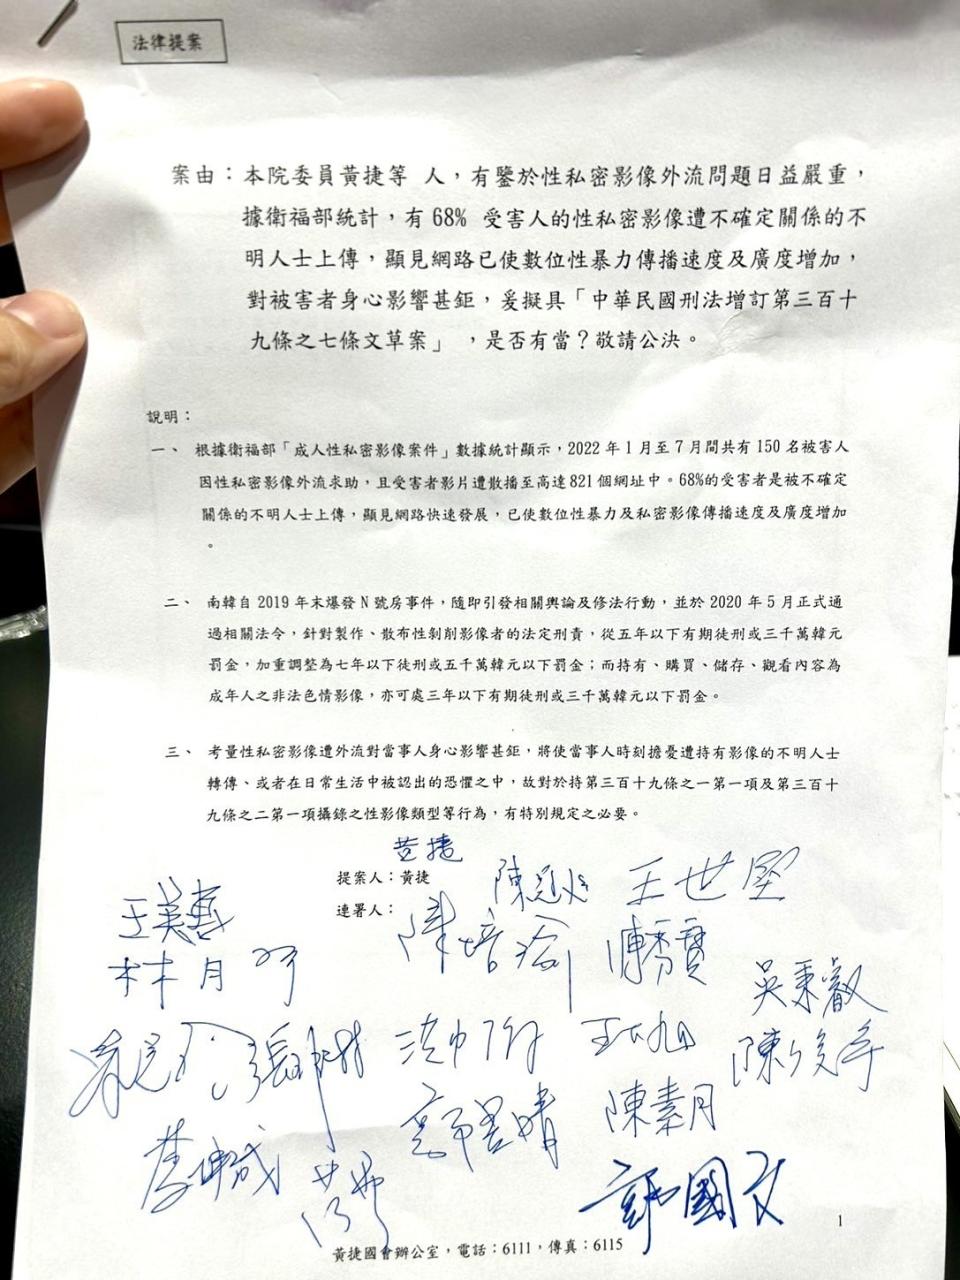 法律提案
案由：本院委員黃捷等 人，有鑒於性私密影像外流問題日益嚴重，
據衛福部統計，有 68% 受害人的性私密影像遭不確定關係的不
明人士上傳，顯見網路已使數位性暴力傳播速度及廣度增加，
對被害者身心影響甚鉅，爰擬具「中華民國刑法增訂第三百十
九條之七條文草案」 ，是否有當？敬請公決。
說明：
一、 根據衛福部「成人性私密影像案件」數據統計顯示，2022 年 1 月至 7 月間共有 150 名被害人
因性私密影像外流求助，且受害者影片遭散播至高達 821 個網址中。68%的受害者是被不確定
關係的不明人士上傳，顯見網路快速發展，已使數位性暴力及私密影像傳播速度及廣度增加
。
二、 南韓自 2019 年末爆發 N 號房事件，隨即引發相關輿論及修法行動，並於 2020 年 5 月正式通
過相關法令，針對製作、散布性剝削影像者的法定刑責，從五年以下有期徒刑或三千萬韓元
罰金，加重調整為七年以下徒刑或五千萬韓元以下罰金；而持有、購買、儲存、觀看內容為
成年人之非法色情影像，亦可處三年以下有期徒刑或三千萬韓元以下罰金。
三、 考量性私密影像遭外流對當事人身心影響甚鉅，將使當事人時刻擔憂遭持有影像的不明人士
轉傳、或者在日常生活中被認出的恐懼之中，故對於持第三百十九條之一第一項及第三百十
九條之二第一項攝錄之性影像類型等行為，有特別規定之必要。
黃捷
提案人：黃捷
連署人：
王世堅
王美惠
陳培瑜
林月琴
吳秉叡
陳素月
黃捷國會辦公室，電話：6111，傳真：6115
1